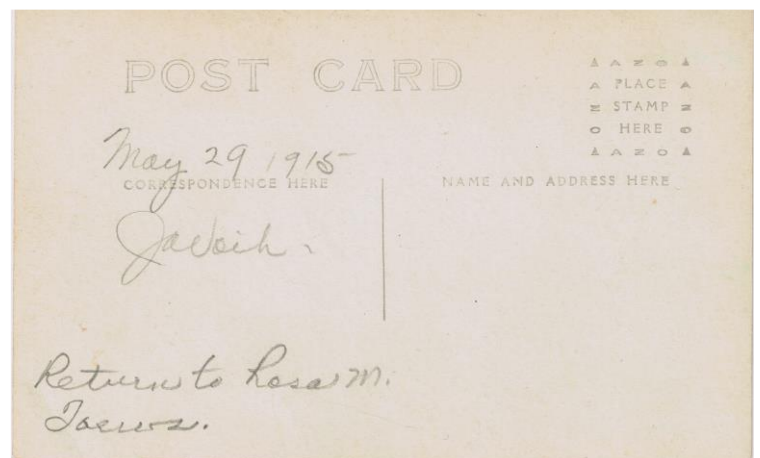 POST CARD
AZO
PLACE
STAMP
HERE
AZO
May 29 1915
CORRESPONDENCE HERE
NAME AND ADDRESS HERE
Return to Rosa M.
Toews.